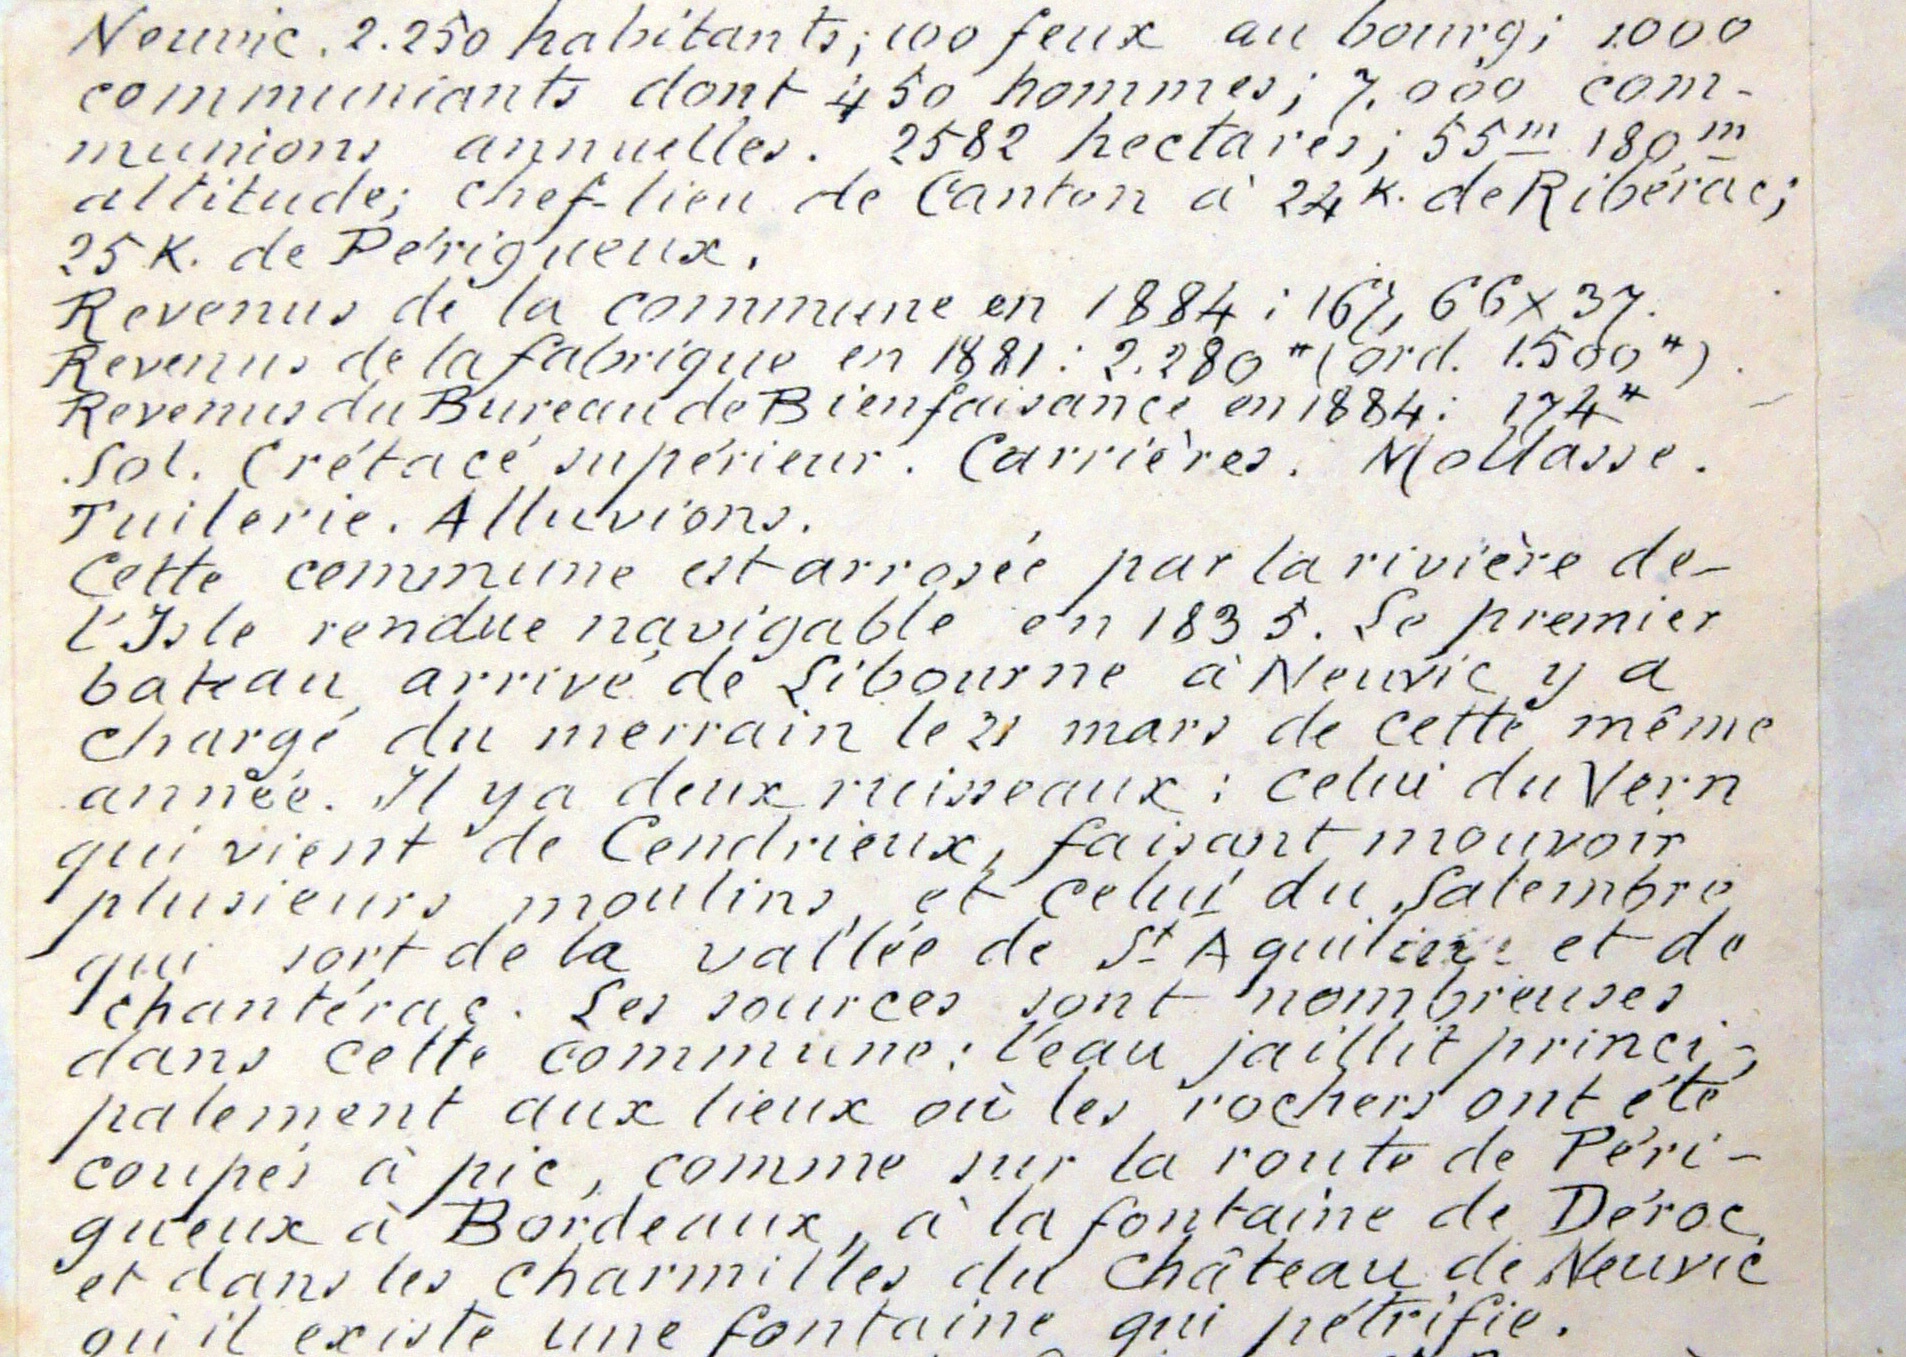 Neuvic. 2.250 habitants; 100 feux au bourg; 1000
communiants dont 450 hommes; 7.000 com-
munions annuelles. 2582 hectares; 55m 180m
altitude; chef-lieu de Canton à 24 K. de Ribérac;
25 K. de Périgueux.
Revenus de la commune en 1884 : 167, 66 x 37.
Revenus de la fabrique en 1881 : 2.280 # (ord. 1.500 #).
Revenus du Bureau de Bienfaisance en 1884 : 174 #
Sol. Crétacé supérieur. Carrières. Mollasse.
Tuilerie. Alluvions.
Cette commune est arrosée par la rivière de-
l'Isle rendue navigable en 1835. Le premier
bateau arrivé de Libourne à Neuvic y a
chargé du merrain le 21 mars de cette même
année. Il y a deux ruisseaux : celui du Vern
qui vient de Cendrieux, faisant mouvoir
plusieurs moulins, et celui du Salembre
qui sort de la vallée de St Aquilin et de
chantérac. Les sources sont nombreuses
dans cette commune : l'eau jaillit princi-
palement aux lieux où les rochers ont été
coupés à pic, comme sur la route de Péri-
gueux à Bordeaux, à la fontaine de Déroc
et dans les charmilles du Château de Neuvic
où il existe une fontaine qui pétrifie.